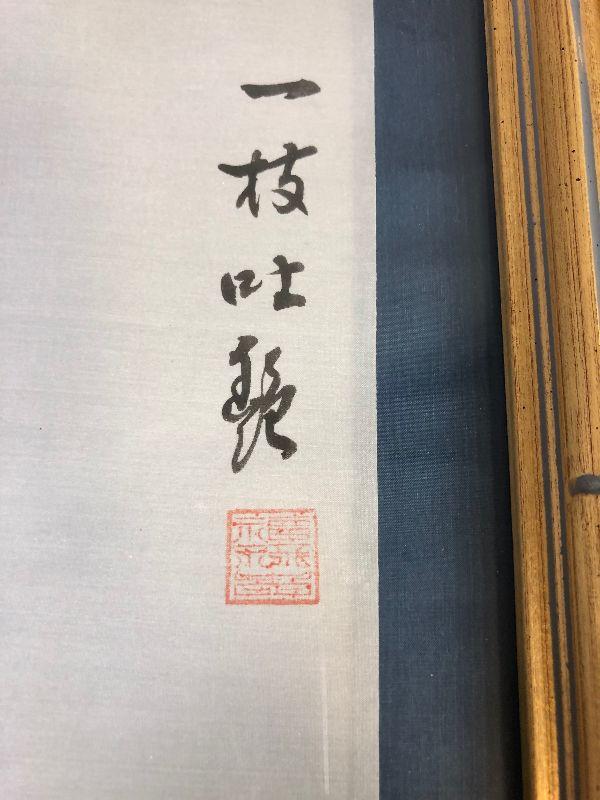 一枝吐艷